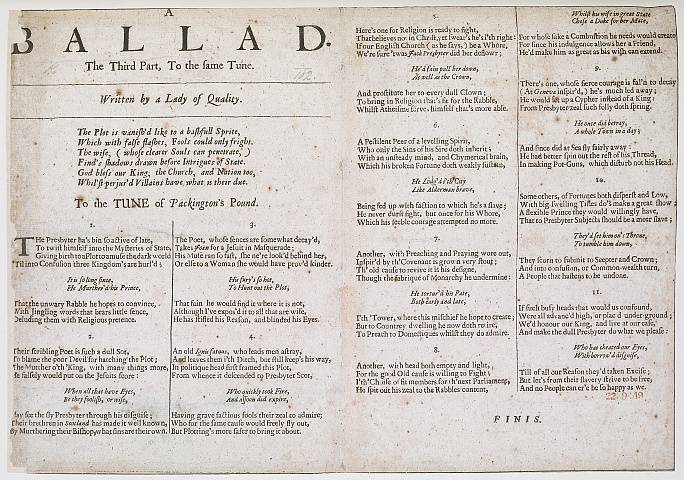 A
BALLAD.
The Third Part, To the same Tune.
Written by a Lady of Quality.
The Plot is vanish'd like a bashfull Sprite,
Which with false flashes, Fools could only fright.
The wise, (whose clearer Souls can penetrate,)
Find's shadows drawn before Intrigues of State.
God bless our King, the Church, and Nation too,
Whilst perjur'd Villains have, what is their due.
To the TUNE of Packington's Pound.
1.
THe Presbyter ha's bin so active of late,
To twist himself into the Mysteries of State,
Giving birth to a Plot to amuse the dark world
Till into Confusion three Kingdom's are hurl'd;
It is so long since,
He Murther'd his Prince,
That the unwary Rabble he hopes to convince,
With Jingling words that bears little sense,
Deluding them with Religious pretence.
2.
Their scribling Poet is such a dull Sot,
To blame the poor Devil for hatching the Plot;
The Murther o'th' King, with many things more,
He falsely would put on the Jesuits score:
When all that have Eyes,
Be they foolish, or wise,
May see the sly Presbyter through his disguise;
Their brethren in Scotland has made it well known,
By Murthering their Bishop, what sins are their own.
3.
The Poet, whose sences are somewhat decay'd,
Takes Joan for a Jesuit in Masquerade;
His Mute ran so fast, she ne're look'd behind her,
Or else to a Woman she would have prov'd kinder.
His fury's so hot,
To Hunt out the Plot,
That fain he would find it where it is not,
Although I've expos'd it to all that are wise,
He has stifled his Reason, and blinded his Eyes.
4.
An old Ignis fatuus, who leads men astray,
And leaves them i'th Ditch, but still keep's his way,
In politique head first framed this Plot,
From whence it descended to Presbyter Scot,
Who quickly took Fire,
And assoon did expire,
Having grave factious fools their zeal to admire;
Who for the same cause would freely fly out,
But Plotting's more safer to bring it about.
5.
Here's one for Religion is ready to fight,
That believes not in Christ, yet swear's he's i'th right:
If our English Church (as he says,) be a Whore,
We're sure 'twas Jack Presbyter did her deflowr;
He'd fain pull her down,
As well as the Crown,
And prostitute her to every dull Clown;
To bring in Religion that's fit for the Rabble,
Whilst Atheisme serves himself that's more able.
6.
A Pestilent Peer of a levelling Spirit,
Who only the Sins of his Sire doth inherit;
With an unsteady mind, and Chymerical brain,
Which his broken Fortune doth weakly sustain,
He Lodg'd i'th City
Like Alderman brave,
Being fed up with faction to which he's a slave;
He never durst fight, but once for his Whore,
Which his feeble courage attempted no more.
7.
Another, with Preaching and Praying wore out,
Inspir'd by th'Covenant is grown very stout;
Th'old cause to revive it is his designe,
Though the fabrique of Monarchy he undermine:
He tortur'd his Pate,
Both early and late,
I'th'Tower, where this mischief he hope to create;
But to Countrey dwelling he now doth retire,
To Preach to Domestiques whilst they do admire.
8.
Another, with head both empty and light,
For the good Old cause is willing to Fight:
I'th'Choise of fit members for th'next Parliament,
He spit out his zeal to the Rabbles content,
Whilst his wife in great State
Chose a Duke for her Mate,
For whose sake a Combustion he needs would create
For since his indulgence allows her a Friend,
He'd make him as great as his wish can extend.
9.
There's one, whose fierce courage is fal'n to decay
(At Geneva inspir'd,) he's much led away;
He would set up a Cypher instead of a King:
From Presbyter zeal such folly doth spring.
He once did betray,
A whole Town in a day;
And since did at Sea fly fairly away:
He had better spin out the rest of his Thread,
In making Pot-Guns, which disturb not his Head.
10.
Some others, of Fortunes both desperate and Low,
With big swelling Titles do's make a great show;
A flexible Prince they would willingly have,
That to Presbyter Subjects should be a meer slave;
They'd set him on's Throne,
To tumble him down,
They scorn to submit to Scepter and Crown;
And into confusion, or Common-wealth turn,
A People that hastens to be undone.
11.
If such busy heads that would us confound,
Were all advanc'd high, or plac'd under-ground;
We'd honour our King, and live at our ease,
And make the dull Presbyter do what we please:
Who has cheated our Eyes,
With borrow'd disguise,
Till of all our Reason they'd taken Excise;
But let's from their slavery strive to be free,
And no People can e'er be so happy as we.
FINIS.